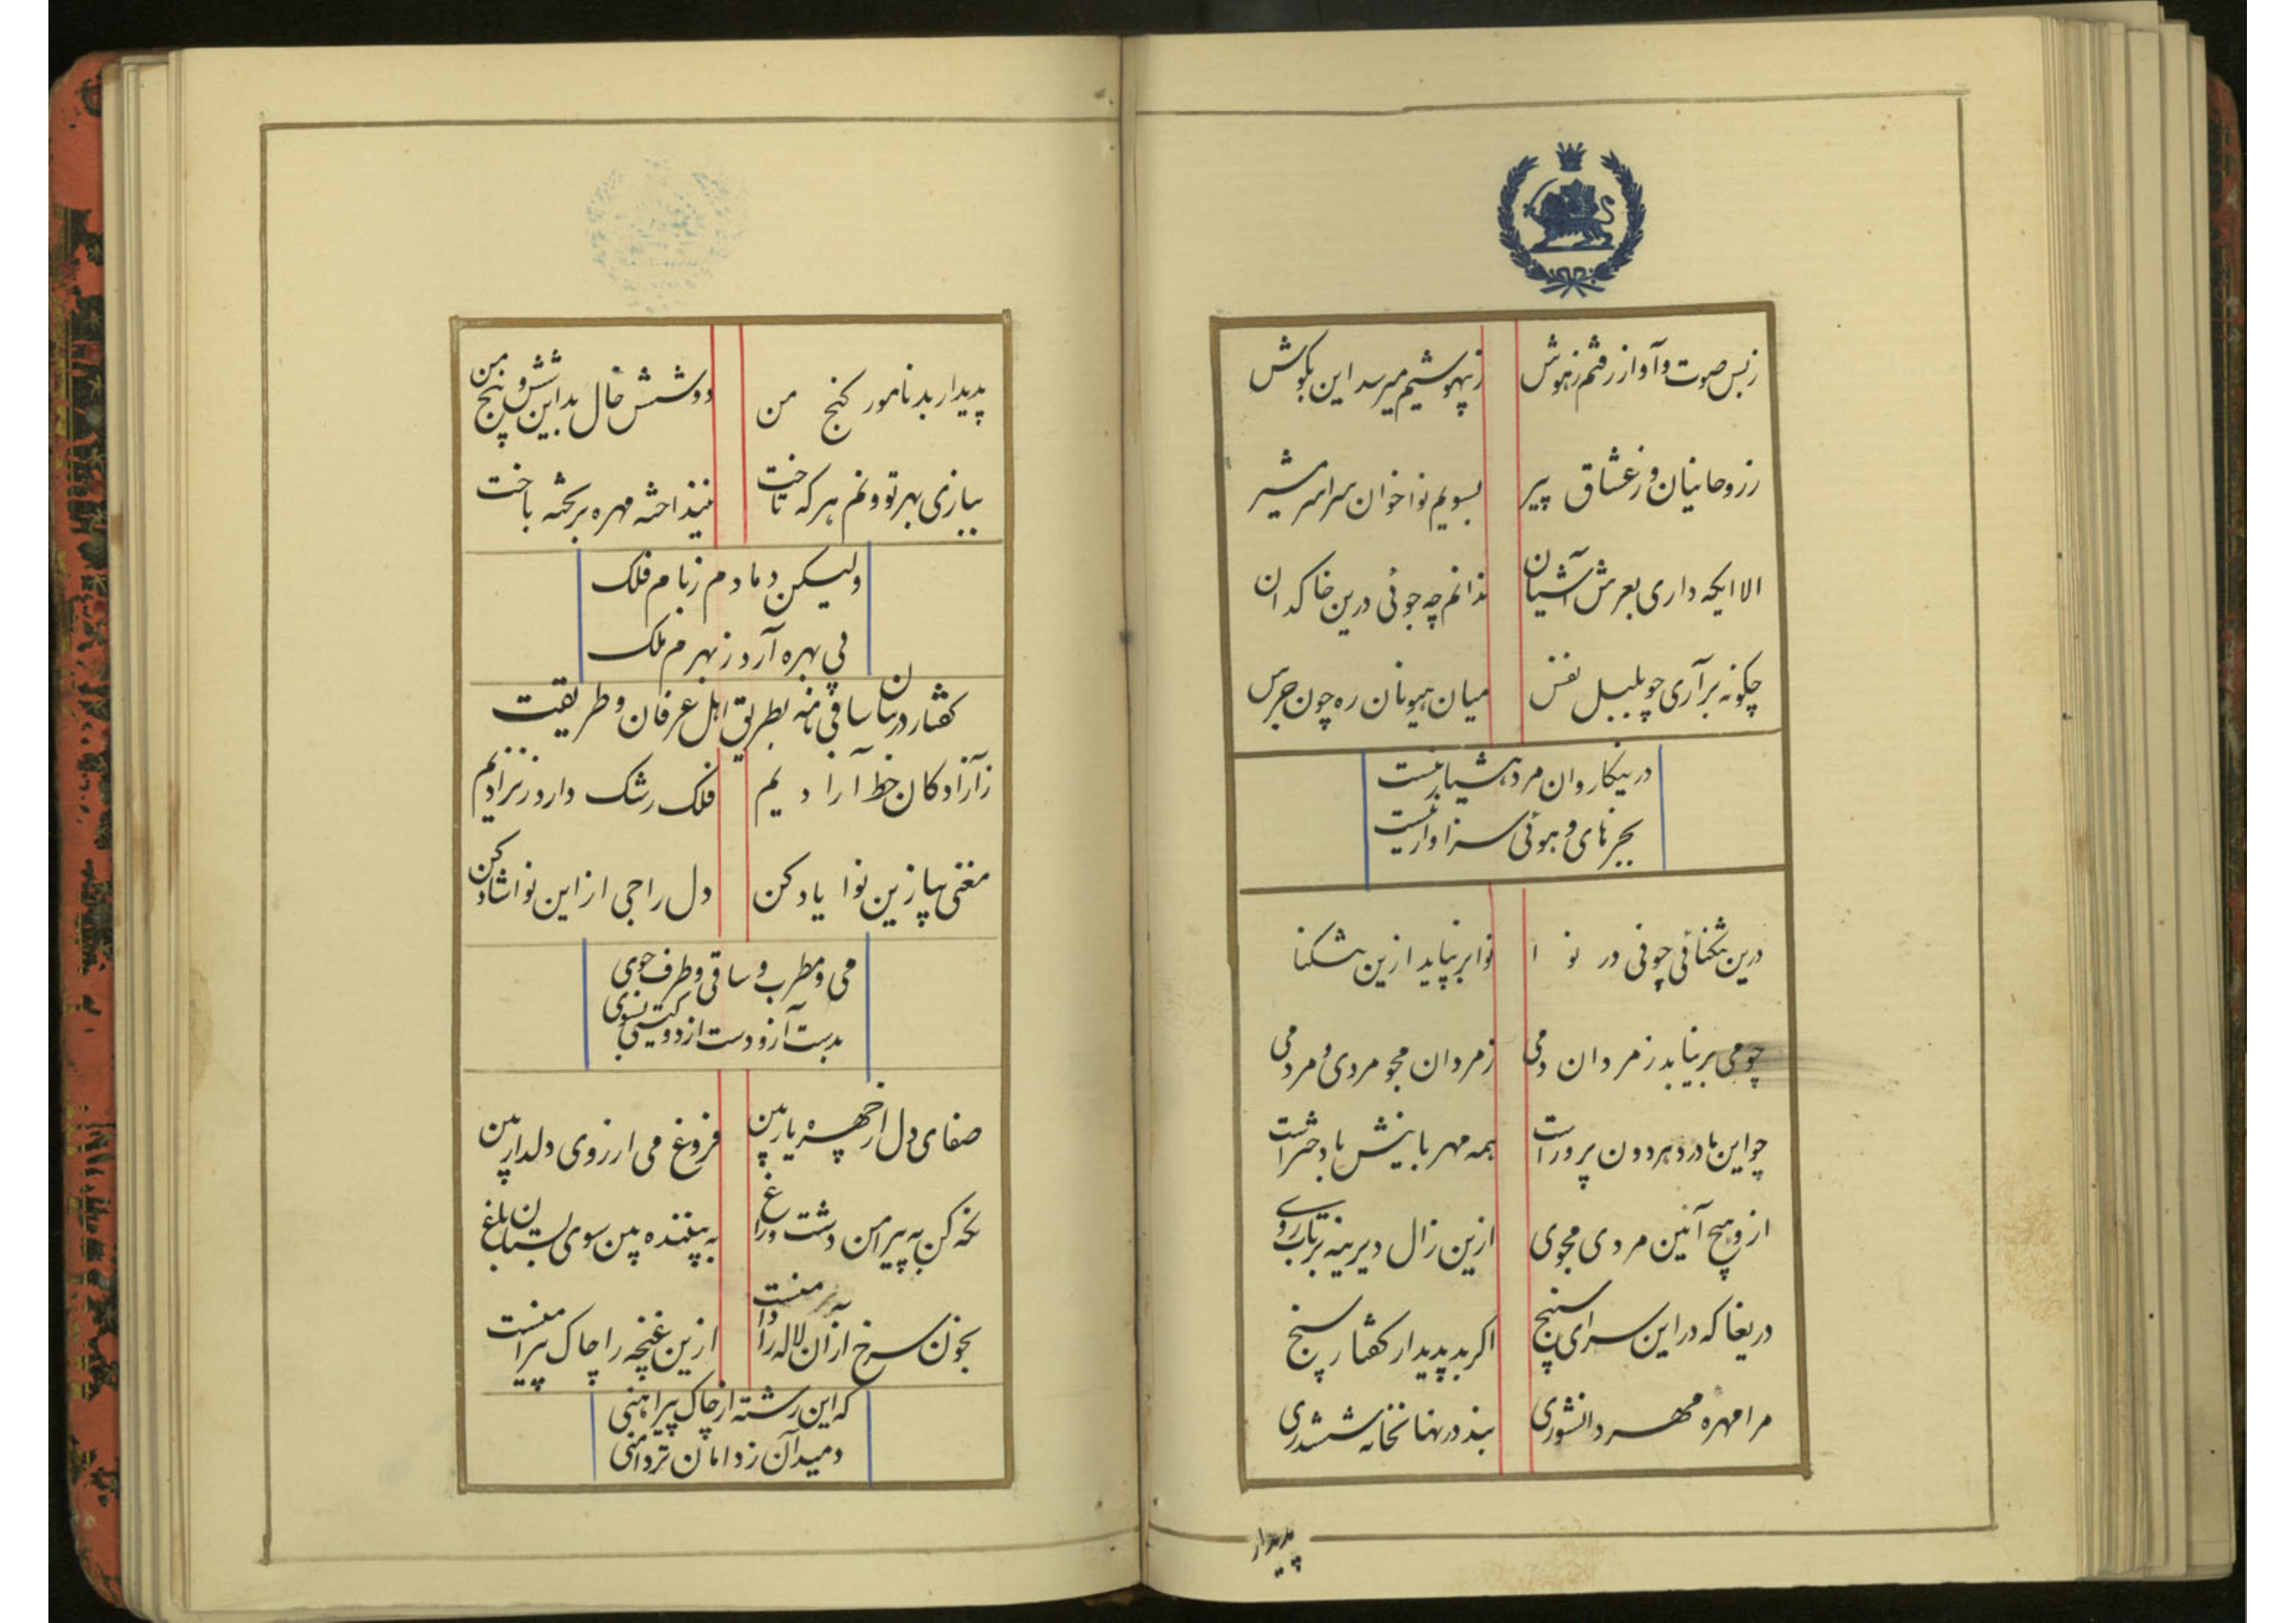 ز بس صوت و آواز رفتم ز هوش ز بیهوشیم میرسد این بگوش
ز روحانیان و ز عشاق پیر بسویم نواخوان سراسر مشیر
الا ایکه داری بعرش آشیان ندانم چه جوئی درین خاکدان
چگونه برآری چو بلبل نفس میان هیونان ره چون جرس
درینکاروان مرد هشیار نیست
بجز های و هوئی سزاوار نیست
درین تنگنائی چو نی در نوا نوا بر نیاید ازین تنگنا
چو می بر نیاید ز مردان دمی ز مردان مجو مردی و مردمی
چو این مادر دهر دون پرور است همه مهربانیش با دختر است
ازو هیچ آئین مردی مجوی ازین زال دیرینه برتاب روی
دریغا که در این سرای سپنج اگر بد پدیدار گفتار سنج
مرا مهره مهر دانشوری نبد در نهانخانه ششدری
پدیدار
پدیدار بد نامور گنج من دوشش خال بد این شش و پنج من
ببازی بهر تو ونم هر که تاخت نینداخته مهره بر تخته باخت
ولیکن دمادم ز بام فلک
پی بهره آرد ز بهرم ملک
گفتار در بیان ساقی نامه بطریق اهل عرفان و طریقت
ز آزادگان خط آرادیم فلک رشک دارد ز نرادیم
مغنی بیا زین نوا یاد کن دل راجی از این نوا شاد کن
می و مطرب و ساقی و طرف جوی
بدست آر و دست از دو گیتی بشوی
صفای دل از چهره یار بین فروغ می از روی دلدار بین
نگه کن به پیرامن دشت و راغ به بیننده بین سوی بستان باغ
بخون سرخ از آن لاله را دامنست ازین غنچه را چاک پیراهنست
که این رشته از چاک پیراهنی
دمید آن ز دامان تر دامنی